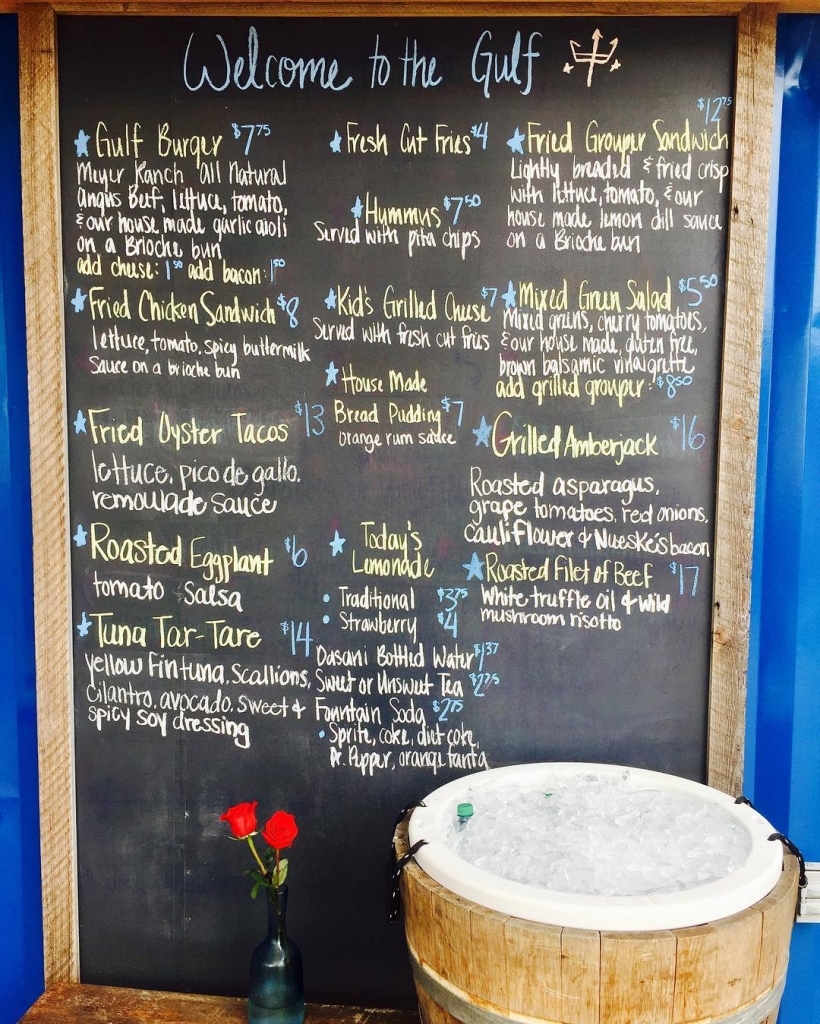 Welcome to the Gulf
Gulf Burger $7.75
Meyer Ranch All Natural
Angus Beef, lettuce, tomato,
& our house made garlic aioli
on a Brioche bun
add cheese: 1.50 add bacon: 1.50
Fried Chicken Sandwich $8
lettuce, tomato, spicy buttermilk
sauce on a brioche bun
Fried Oyster Tacos $13
lettuce, pico de gallo.
remoulade sauce
Roasted Eggplant $6
tomato salsa
Tuna Tar-Tare $14
yellow fin tuna, scallions,
cilantro, avocado, sweet &
spicy soy dressing
Fresh Cut Fries $4
Hummus $7.50
Served with pita chips
Kid's Grilled Cheese $7
Served with fresh cut fries
House Made
Bread Pudding $7
orange rum sauce
Today's
Lemonade
• Traditional $3.75
• Strawberry $4
Dasani Bottled Water $1.37
Sweet or Unsweet Tea $2.75
Fountain Soda $2.75
• Sprite, coke, diet coke,
Dr. Pepper, orange fanta
$12.75
Fried Grouper Sandwich
Lightly breaded & fried crisp
with lettuce, tomato, & our
house made lemon dill sauce
on a Brioche bun
Mixed Green Salad $5.50
Mixed greens, cherry tomatoes,
& our house made, gluten free,
brown balsamic vinaigrette
add grilled grouper: $8.50
Grilled Amberjack $16
Roasted asparagus,
grape tomatoes, red onions,
cauliflower & Nueske's bacon
Roasted Filet of Beef $17
White truffle oil & wild
mushroom risotto